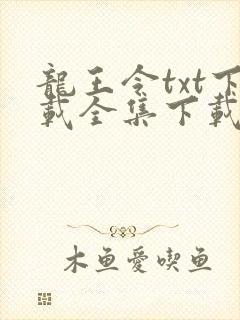 龍王令txt下
載全集下載
木鱼愛喫鱼